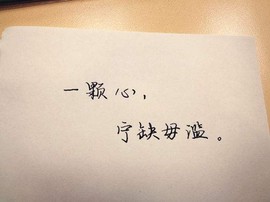 一颗心，
宁缺毋滥。